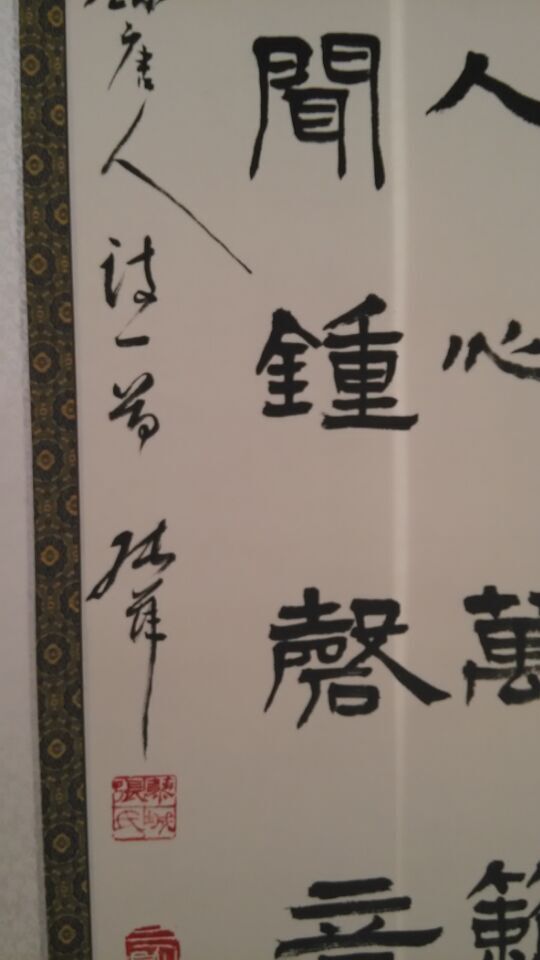 人心萬籟
聞鍾磬音
唐人詩一首
張氏